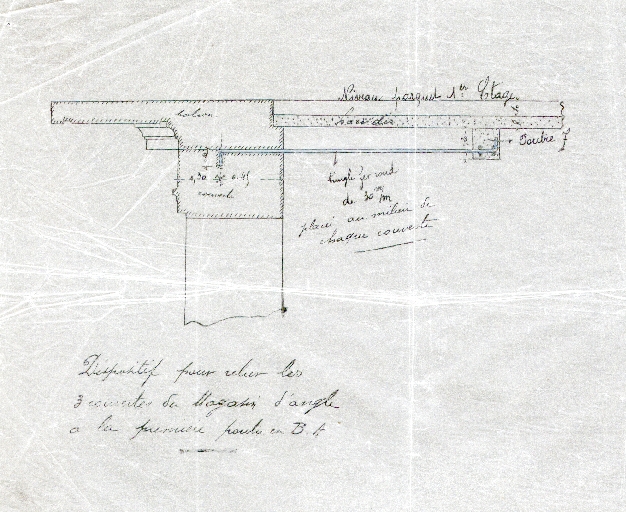 Niveau parquet 1er Etage
balcon
hourdis
Poutre
0,30 0.45
couverte
tringle fer rond
de 30 m/m
placé au milieu de
chaque couverte
Dispositif pour relier les
3 couvertes du Magasin d'angle
a la première poutre en B.A